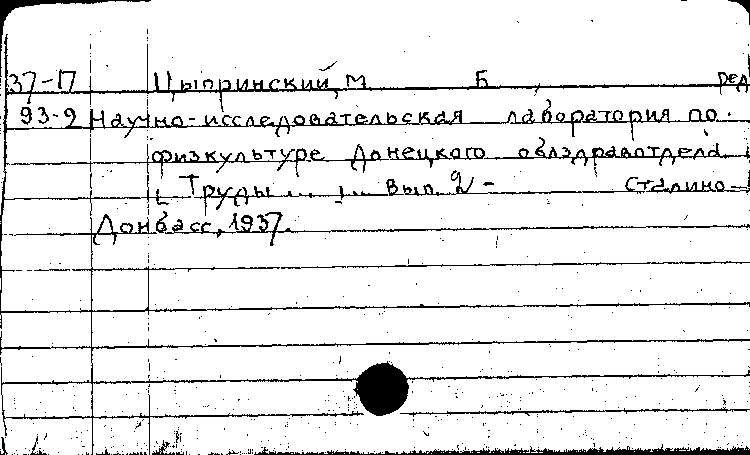 37-П Цыпринский, М Б , ред
93-9 Научно-исследовательская лаборатория по
физкультуре Донецкого облздравотдела.
[ Труды ... ] ... Вып. 2 - Сталино-
Донбасс, 1937.